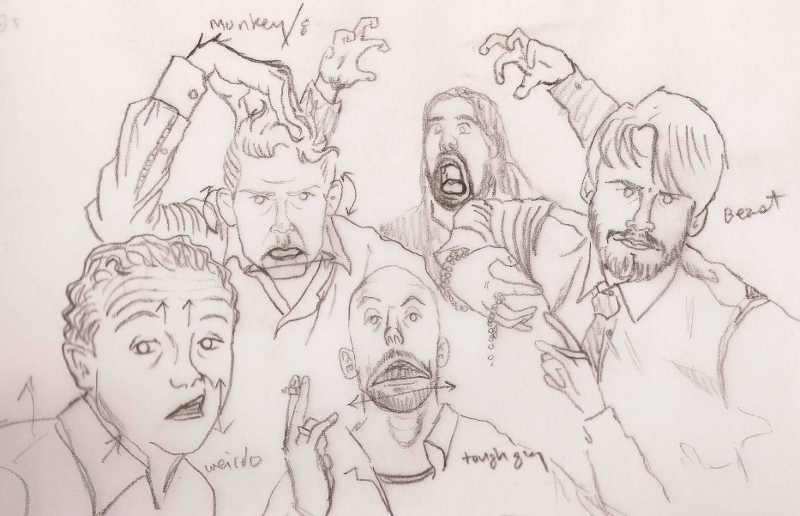 monkey/s
Beast
weirdo
tough guy